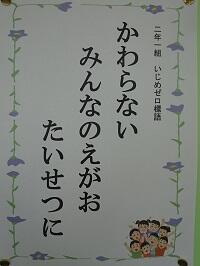 二年一組　いじめゼロ標語
かわらない
みんなのえがお
たいせつに